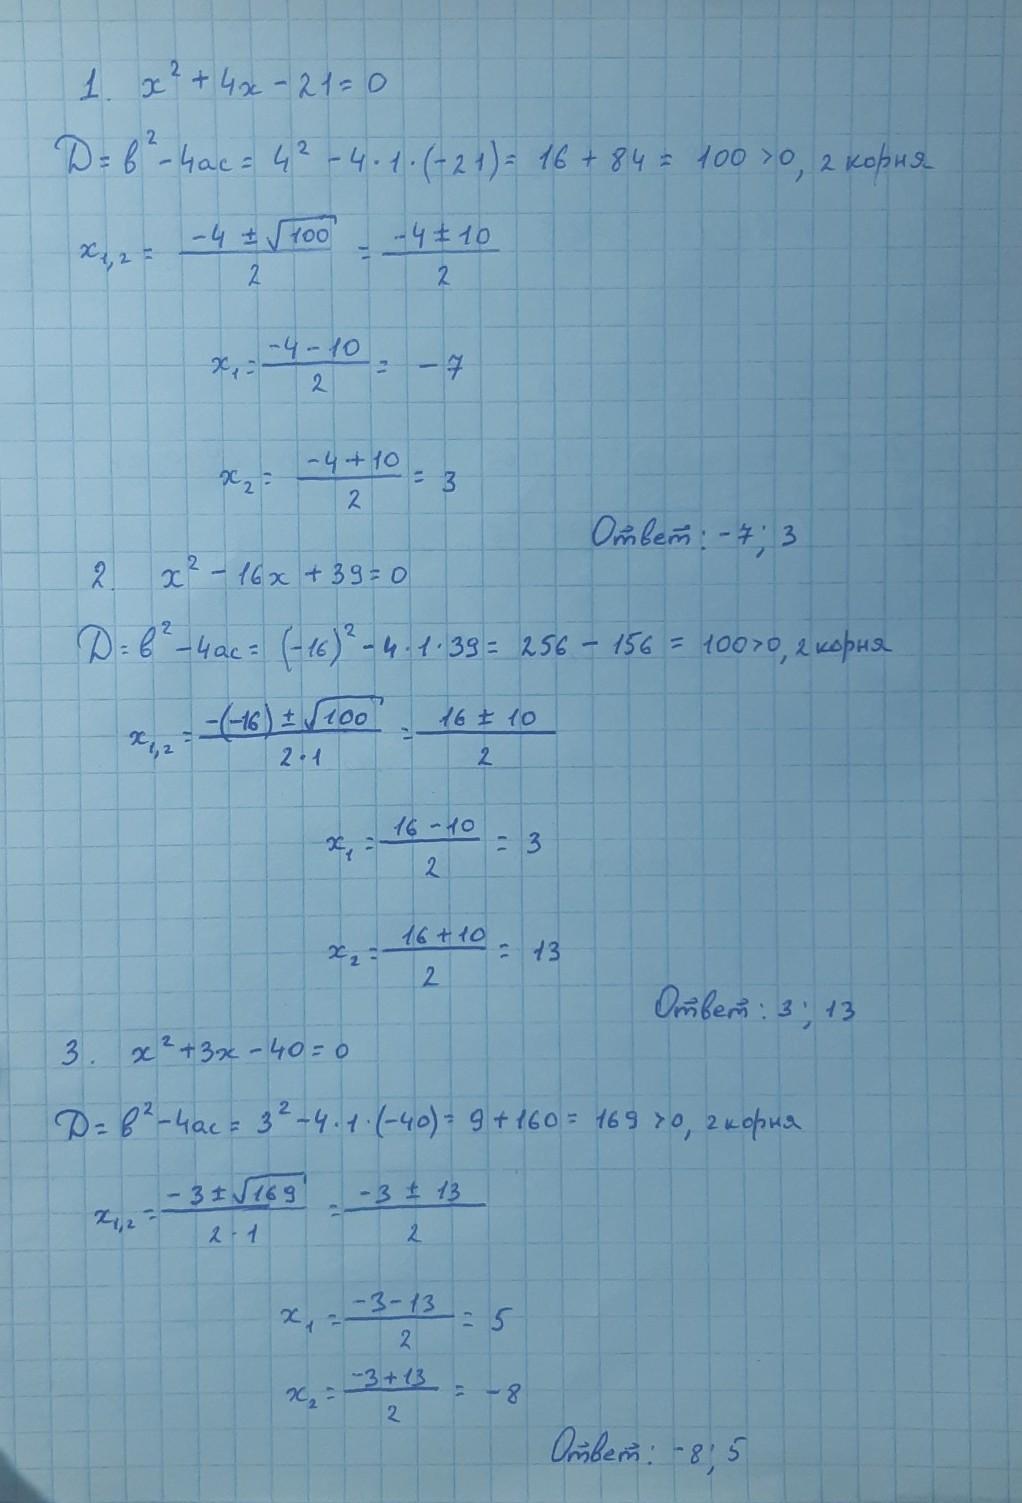 1. x² + 4x - 21 = 0
D = b² - 4ac = 4² - 4·1·(-21) = 16 + 84 = 100 > 0, 2 корня
x₁,₂ = (-4 ± √100)/2 = (-4 ± 10)/2
x₁ = (-4 - 10)/2 = -7
x₂ = (-4 + 10)/2 = 3
Ответ: -7; 3
2. x² - 16x + 39 = 0
D = b² - 4ac = (-16)² - 4·1·39 = 256 - 156 = 100 > 0, 2 корня
x₁,₂ = (-(-16) ± √100)/(2·1) = (16 ± 10)/2
x₁ = (16 - 10)/2 = 3
x₂ = (16 + 10)/2 = 13
Ответ: 3; 13
3. x² + 3x - 40 = 0
D = b² - 4ac = 3² - 4·1·(-40) = 9 + 160 = 169 > 0, 2 корня
x₁,₂ = (-3 ± √169)/(2·1) = (-3 ± 13)/2
x₁ = (-3 - 13)/2 = 5
x₂ = (-3 + 13)/2 = -8
Ответ: -8; 5